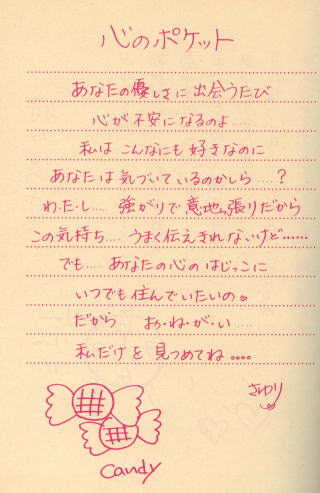 心のポケット
あなたの優しさに 出会うたび
心が 不安に なるのよ……
私は こんなにも 好きなのに
あなたは 気づいて いるのかしら ……?
わ・た・し…… 強がりで 意地っ張りだから
この気持ち…… うまく伝えきれないけど……
でも…… あなたの心の はじっこに
いつでも 住んでいたいの。
だから… お・ね・が・い ……
私だけを 見つめてね 。。。。
さゆり
Candy